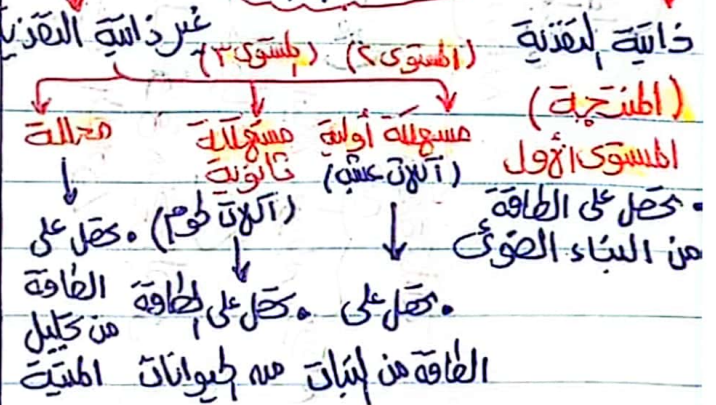 ذاتية التغذية
(المنتجة)
المستوى الأول
• تحصل على الطاقة
من البناء الضوئي
غير ذاتية التغذية
(المستوى ٢) (المستوى ٣)
مستهلكة أولية
(آكلات عشب)
• تحصل على
الطاقة من النبات
مستهلكة
ثانوية
(آكلات لحوم)
• تحصل على الطاقة
من الحيوانات
محللة
• تحصل على
الطاقة
من تحليل
الميتة